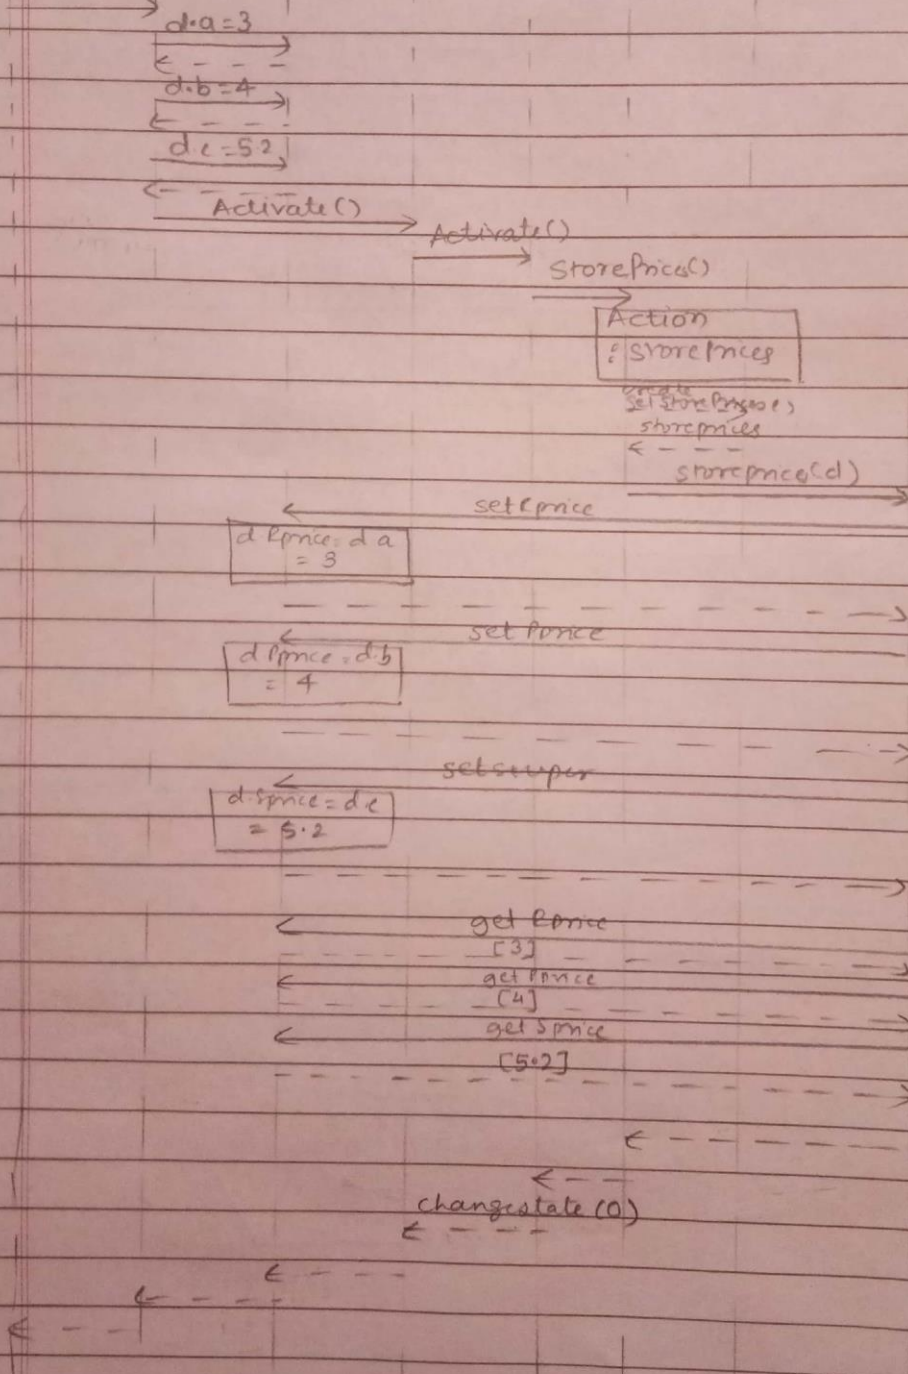 d.a=3
d.b=4
d.c=5.2
Activate()
Activate()
StorePrices()
Action
: StorePrices
create
storeprices
storeprices(d)
setRprice
d Rprice = d a
= 3
setPprice
d Pprice = d.b
= 4
d.Sprice = d.c
= 5.2
get Rprice
[3]
get Pprice
[4]
get Sprice
[5.2]
changestate(0)